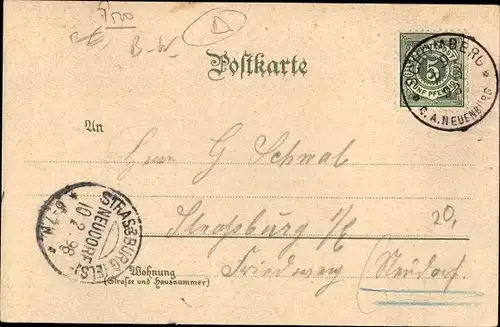 B-W.
D
Postkarte
5
FÜNF PFENNIG
O.A. NEUENBÜRG
An
Herrn G Schwab
Straßburg i/E
20,
STRASSBURG
NEUDORF
(ELS)
10 2 98
6-7 N
Wohnung
(Straße und Hausnummer)
(Neudorf.